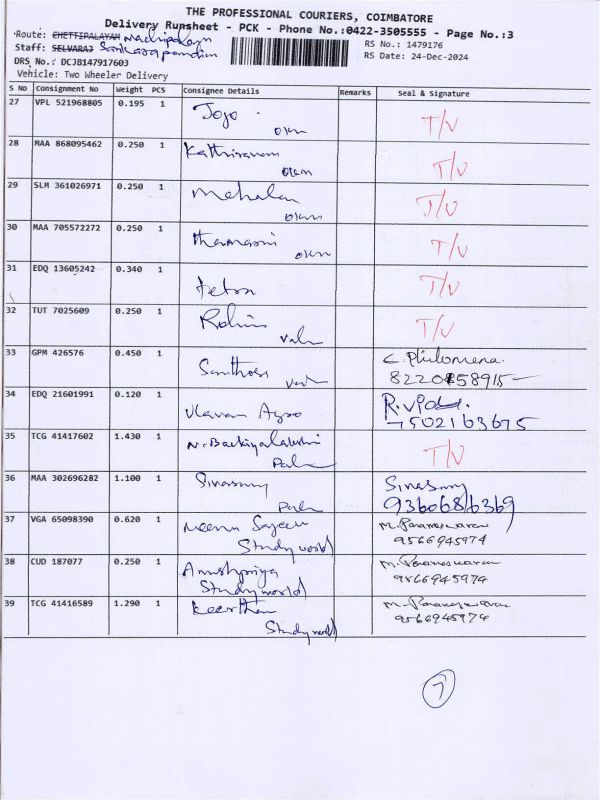 THE PROFESSIONAL COURIERS, COIMBATORE
Delivery Runsheet - PCK - Phone No.:0422-3505555 - Page No.:3
Route: CHETTIPALAYAM
RS No.: 1479176
Staff: SELVARAJ Sankarapandian
RS Date: 24-Dec-2024
DRS No.: DCJB147917603
Vehicle: Two Wheeler Delivery
S NO Consignment No Weight PCS Consignee Details Remarks Seal & Signature
27 VPL 521968805 0.195 1 Jojo T/V
28 MAA 868095462 0.250 1 Kathiravan T/V
29 SLM 361026971 0.250 1 T/V
30 MAA 705572272 0.250 1 T/V
31 EDQ 13605242 0.340 1 T/V
32 TUT 7025609 0.250 1 Rohini T/V
33 GPM 426576 0.450 1 Santhosh C. Philomena
34 EDQ 21601991 0.120 1 Agro R.
7502163675
35 TCG 41417602 1.430 1 N. Backiyalakshmi T/V
36 MAA 302696282 1.100 1 Sivasamy Sivasamy
9360686369
37 VGA 65098390 0.620 1 Meenu Sajeev M. Parameswaran
Study world 9566945974
38 CUD 187077 0.250 1 Anushpriya M. Parameswaran
Study world 9566945974
39 TCG 41416589 1.290 1 Keerthan M. Parameswaran
Study world 9566945974
7